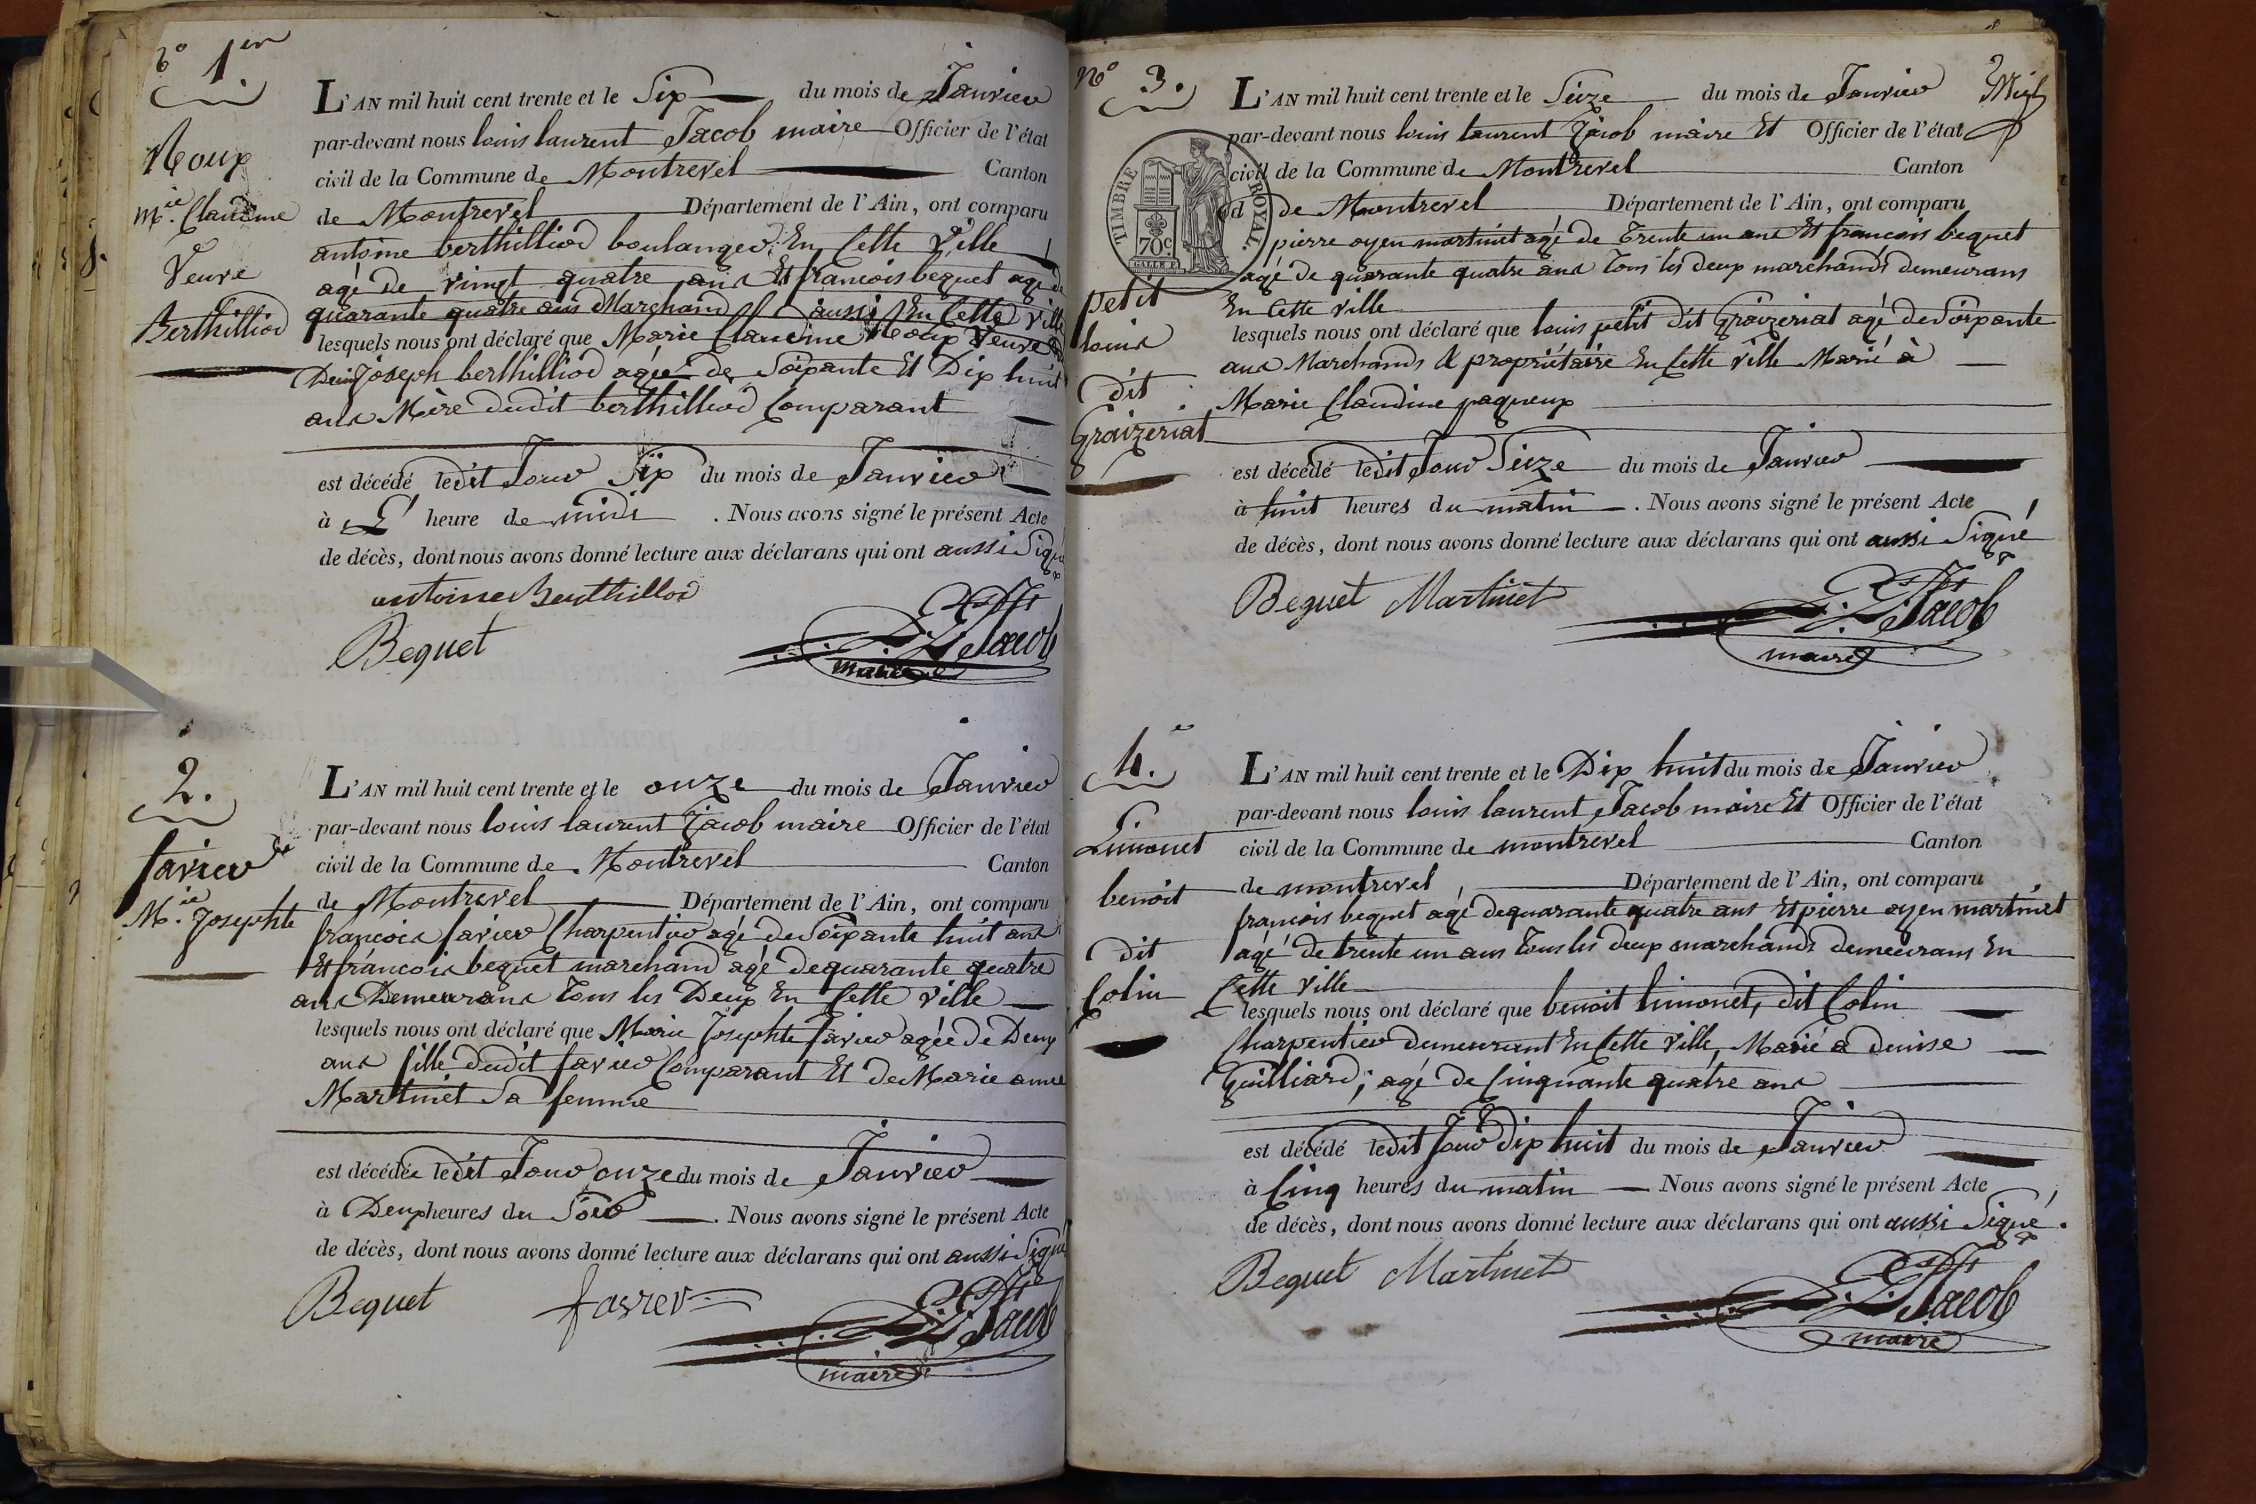 No 1er
Roux
Mie. Claudine
Veuve
Berthilliod
L'AN mil huit cent trente et le Six du mois de Janvier
par-devant nous louis laurent Jacob maire Officier de l'état
civil de la Commune de Montrevel Canton
de Montrevel Département de l'Ain, ont comparu
antoine berthilliod boulanger En Cette Ville
agé de vingt quatre ans Et francois bequet agé de
quarante quatre ans Marchand aussi En Cette ville
lesquels nous ont déclaré que Marie Claudine Roux Veuve de
Joseph berthilliod agée de Soixante Et Dix huit
ans Mère dudit berthilliod Comparant
est décédé ledit Jour Six du mois de Janvier
à L' heure de midi . Nous avons signé le présent Acte
de décès, dont nous avons donné lecture aux déclarans qui ont aussi Signé
antoine Berthilliod
Bequet
L. L. Jacob
maire
2.
favier
Mie. Josephte
L'AN mil huit cent trente et le onze du mois de Janvier
par-devant nous louis laurent Jacob maire Officier de l'état
civil de la Commune de Montrevel Canton
de Montrevel Département de l'Ain, ont comparu
francois favier Charpentier agé de Soixante huit ans
Et francois bequet marchand agé de quarante quatre
ans Demeurans tous les Deux En Cette ville
lesquels nous ont déclaré que Marie Josephte favier agée de Deux
ans fille dudit favier Comparant Et de Marie anne
Martinet Sa femme
est décédée ledit Jour onze du mois de Janvier
à Deux heures du Soir . Nous avons signé le présent Acte
de décès, dont nous avons donné lecture aux déclarans qui ont aussi Signé
Bequet favier L. L. Jacob
maire
No 3.
petit
louis
dit
Graizeriat
L'AN mil huit cent trente et le Seize du mois de Janvier
par-devant nous louis laurent Jacob maire Et Officier de l'état
civil de la Commune de Montrevel Canton
de Montrevel Département de l'Ain, ont comparu
TIMBRE ROYAL.
70c
pierre oyen martinet agé de Trente un ans Et francois bequet
agé de quarante quatre ans tous les deux marchands demeurans
En Cette ville
lesquels nous ont déclaré que louis petit dit Graizeriat agé de Soixante
ans Marchand & propriétaire En Cette ville Marié à
Marie Claudine paqueux
est décédé ledit Jour Seize du mois de Janvier
à huit heures du matin . Nous avons signé le présent Acte
de décès, dont nous avons donné lecture aux déclarans qui ont aussi Signé
Bequet Martinet L. L. Jacob
maire
4.e
Limonet
benoit
dit
Colin
L'AN mil huit cent trente et le Dix huit du mois de Janvier
par-devant nous louis laurent Jacob maire Et Officier de l'état
civil de la Commune de montrevel Canton
de montrevel Département de l'Ain, ont comparu
francois bequet agé de quarante quatre ans Et pierre oyen martinet
agé de trente un ans tous les deux marchands demeurans En
Cette ville
lesquels nous ont déclaré que benoit limonet, dit Colin
Charpentier demeurant En Cette ville, Marié a denise
Guilliard; agé de Cinquante quatre ans
est décédé ledit Jour dix huit du mois de Janvier
à Cinq heures du matin Nous avons signé le présent Acte
de décès, dont nous avons donné lecture aux déclarans qui ont aussi Signé.
Bequet Martinet L. L. Jacob
maire